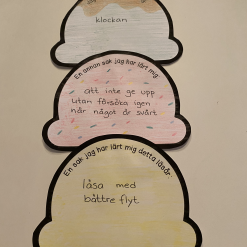 klockan
En annan sak jag har lärt mig
att inte ge upp
utan försöka igen
när något är svårt
En sak jag har lärt mig detta läsår:
låsa med
båttre flyt.